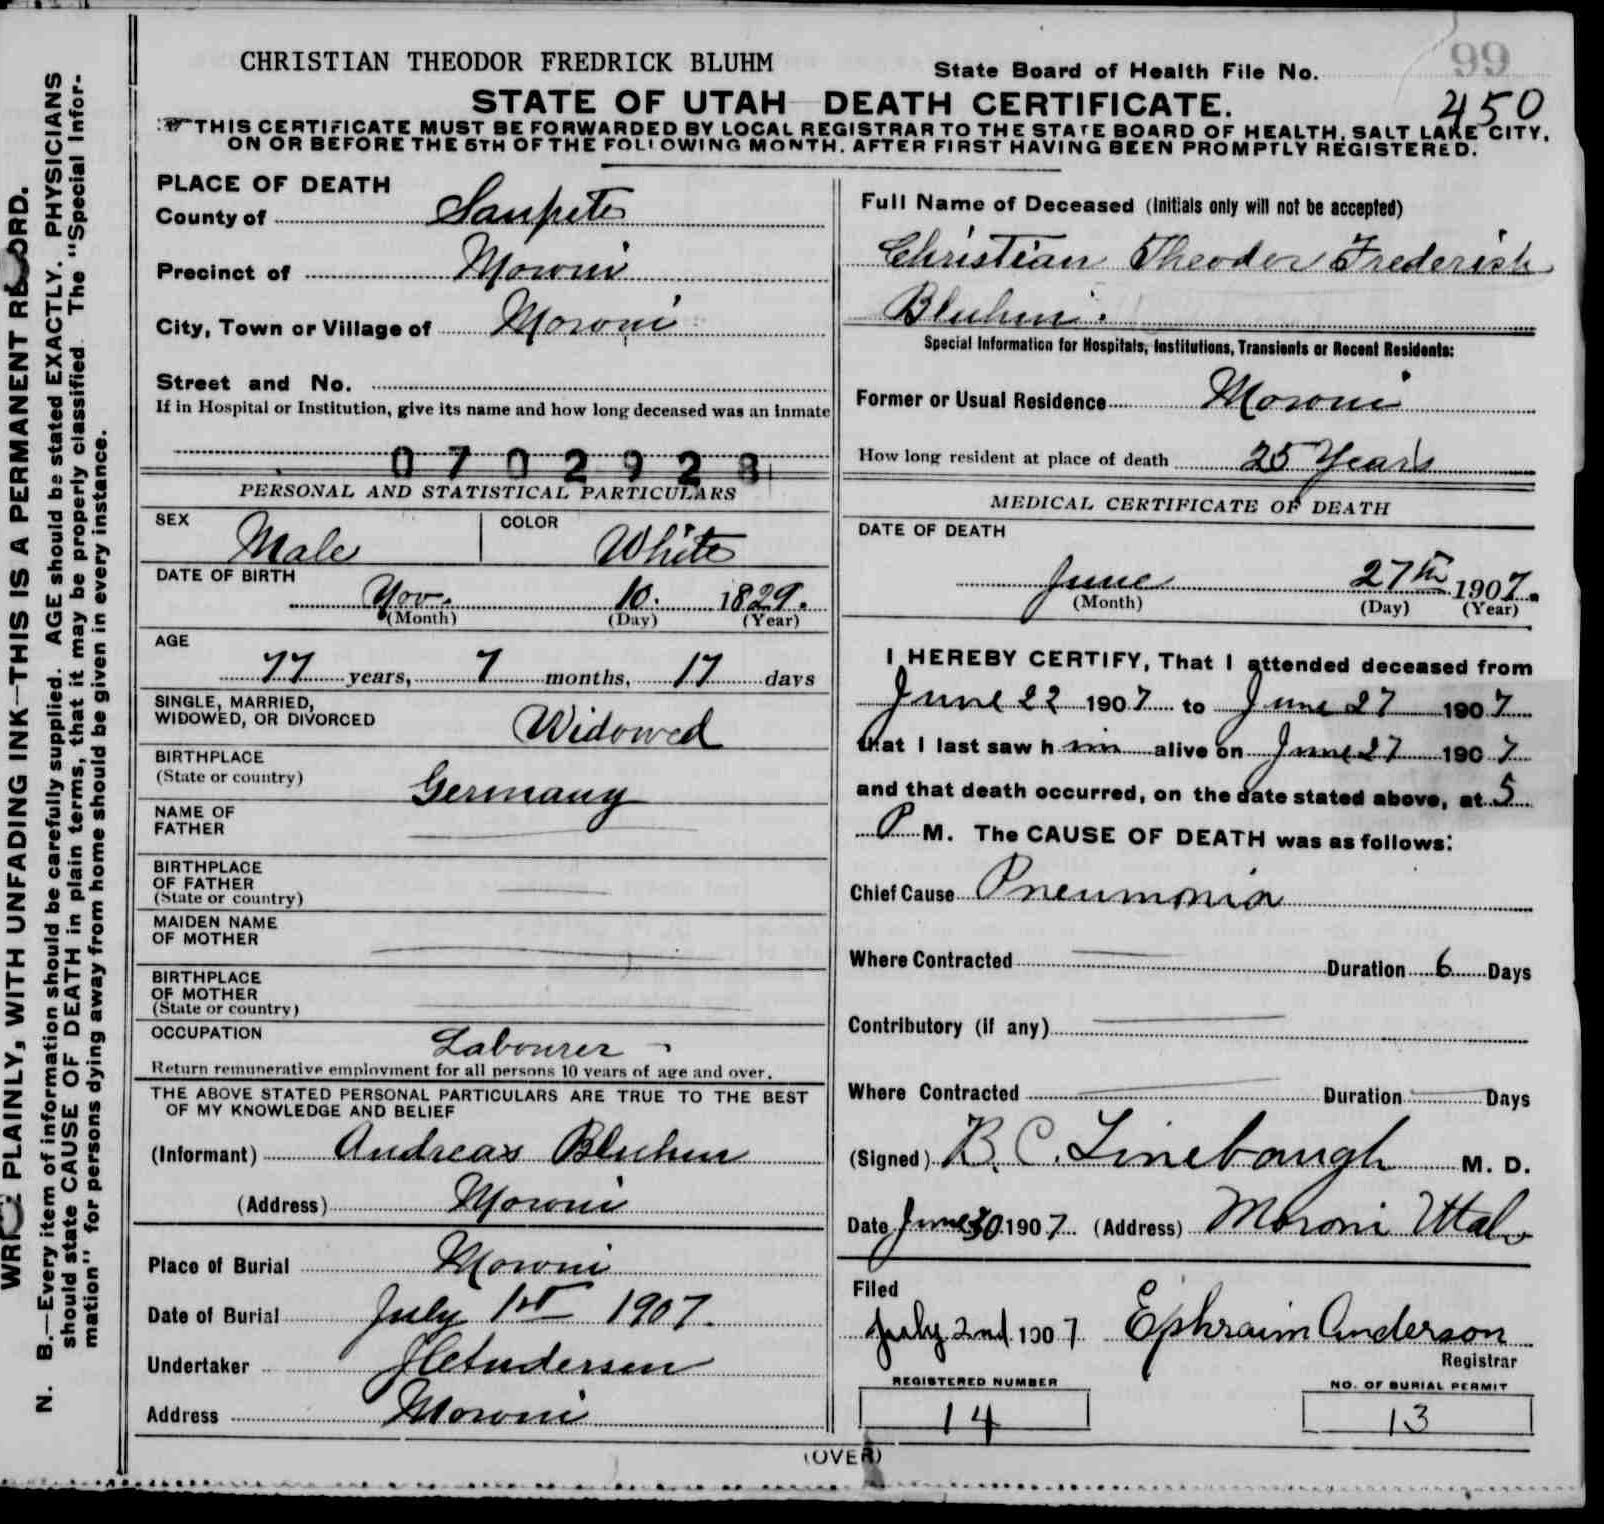 CHRISTIAN THEODOR FREDRICK BLUHM
State Board of Health File No. 99
450
STATE OF UTAH DEATH CERTIFICATE.
THIS CERTIFICATE MUST BE FORWARDED BY LOCAL REGISTRAR TO THE STATE BOARD OF HEALTH, SALT LAKE CITY,
ON OR BEFORE THE 5TH OF THE FOLLOWING MONTH, AFTER FIRST HAVING BEEN PROMPTLY REGISTERED.
PLACE OF DEATH
County of Sanpete
Precinct of Moroni
City, Town or Village of Moroni
Street and No.
If in Hospital or Institution, give its name and how long deceased was an inmate
0702928
PERSONAL AND STATISTICAL PARTICULARS
SEX Male COLOR White
DATE OF BIRTH
Nov. 10. 1829.
(Month) (Day) (Year)
AGE
77 years, 7 months, 17 days
SINGLE, MARRIED,
WIDOWED, OR DIVORCED Widowed
BIRTHPLACE
(State or country) Germany
NAME OF
FATHER
BIRTHPLACE
OF FATHER
(State or country)
MAIDEN NAME
OF MOTHER
BIRTHPLACE
OF MOTHER
(State or country)
OCCUPATION Labourer
Return remunerative employment for all persons 10 years of age and over.
THE ABOVE STATED PERSONAL PARTICULARS ARE TRUE TO THE BEST
OF MY KNOWLEDGE AND BELIEF
(Informant) Andreas Bluhm
(Address) Moroni
Place of Burial Moroni
Date of Burial July 1st 1907.
Undertaker Andersen
Address Moroni
Full Name of Deceased (Initials only will not be accepted)
Christian Theodor Frederick
Bluhm.
Special Information for Hospitals, Institutions, Transients or Recent Residents:
Former or Usual Residence Moroni
How long resident at place of death 25 Years
MEDICAL CERTIFICATE OF DEATH
DATE OF DEATH
June 27th 1907.
(Month) (Day) (Year)
I HEREBY CERTIFY, That I attended deceased from
June 22 1907 to June 27 1907
that I last saw him alive on June 27 1907
and that death occurred, on the date stated above, at 5
P M. The CAUSE OF DEATH was as follows:
Chief Cause Pneumonia
Where Contracted Duration 6 Days
Contributory (if any)
Where Contracted Duration Days
(Signed) B. C. Linebaugh M. D.
Date June 30 1907 (Address) Moroni Utah
Filed
July 2nd 1907 Ephraim Anderson
Registrar
REGISTERED NUMBER
14
NO. OF BURIAL PERMIT
13
(OVER)
WRITE PLAINLY, WITH UNFADING INK—THIS IS A PERMANENT RECORD.
N. B.—Every item of information should be carefully supplied. AGE should be stated EXACTLY. PHYSICIANS
should state CAUSE OF DEATH in plain terms, that it may be properly classified. The "Special Infor-
mation" for persons dying away from home should be given in every instance.